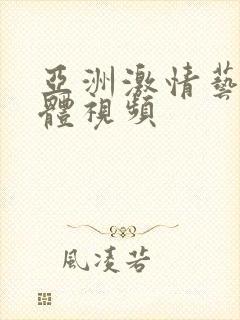 亞洲激情藝
體視頻
風凌若